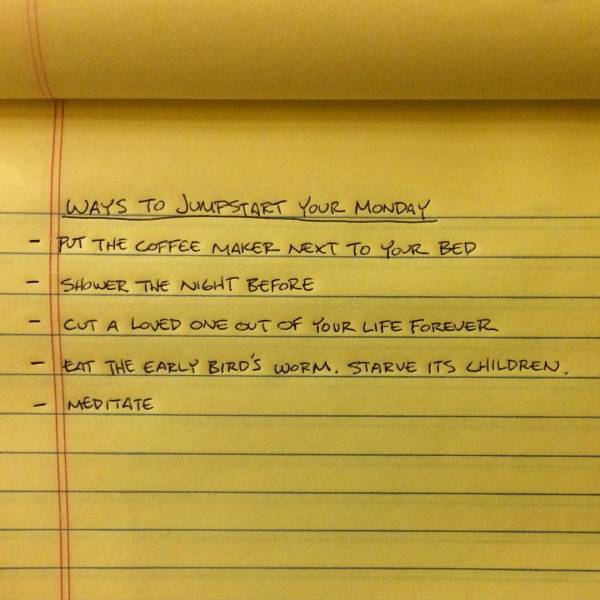 WAYS TO JUMPSTART YOUR MONDAY
- PUT THE COFFEE MAKER NEXT TO YOUR BED
- SHOWER THE NIGHT BEFORE
- CUT A LOVED ONE OUT OF YOUR LIFE FOREVER
- EAT THE EARLY BIRD'S WORM. STARVE ITS CHILDREN.
- MEDITATE